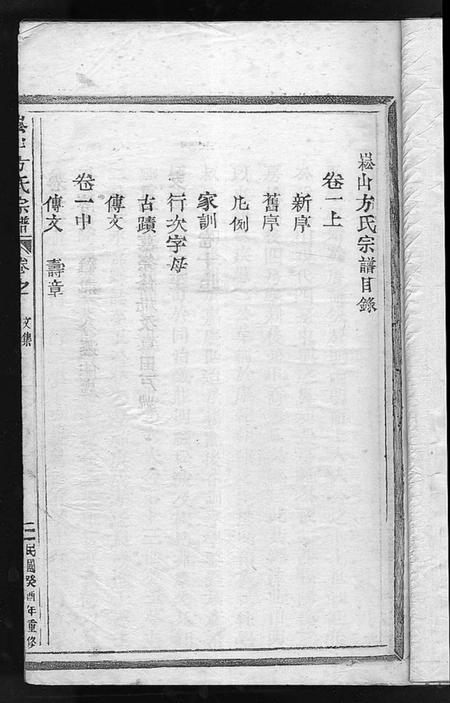 崧山方氏宗譜目錄
卷一上
新序
舊序
凡例
家訓
行次字母
古蹟
傳文
卷一中
傳文　壽章
崧山方氏宗譜
卷之一
文集
民國癸酉年重修